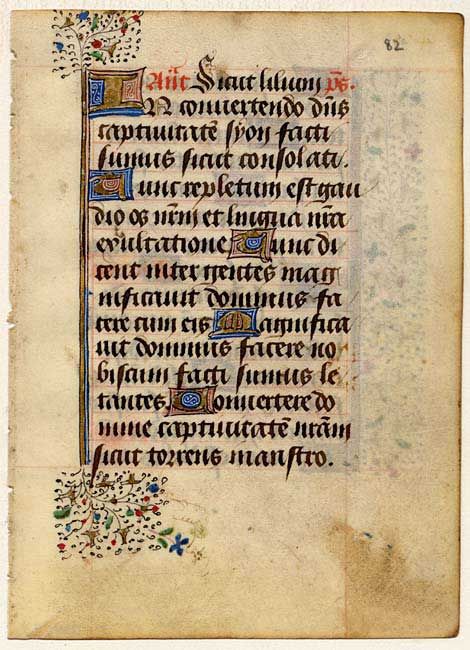 82
Añt Sicut lilium p̄s.
IN conuertendo dn̄s
captiuitatē syon facti
sumus sicut consolati.
Tunc repletum est gau
dio os nr̄m et lingua nr̄a
exultatione Tunc di
cent inter gentes mag
nificauit dominus fa
cere cum eis Magnifica
uit dominus facere no
biscum facti sumus le
tantes. Conuertere do
mine captiuitatē nr̄am
sicut torrens in austro.